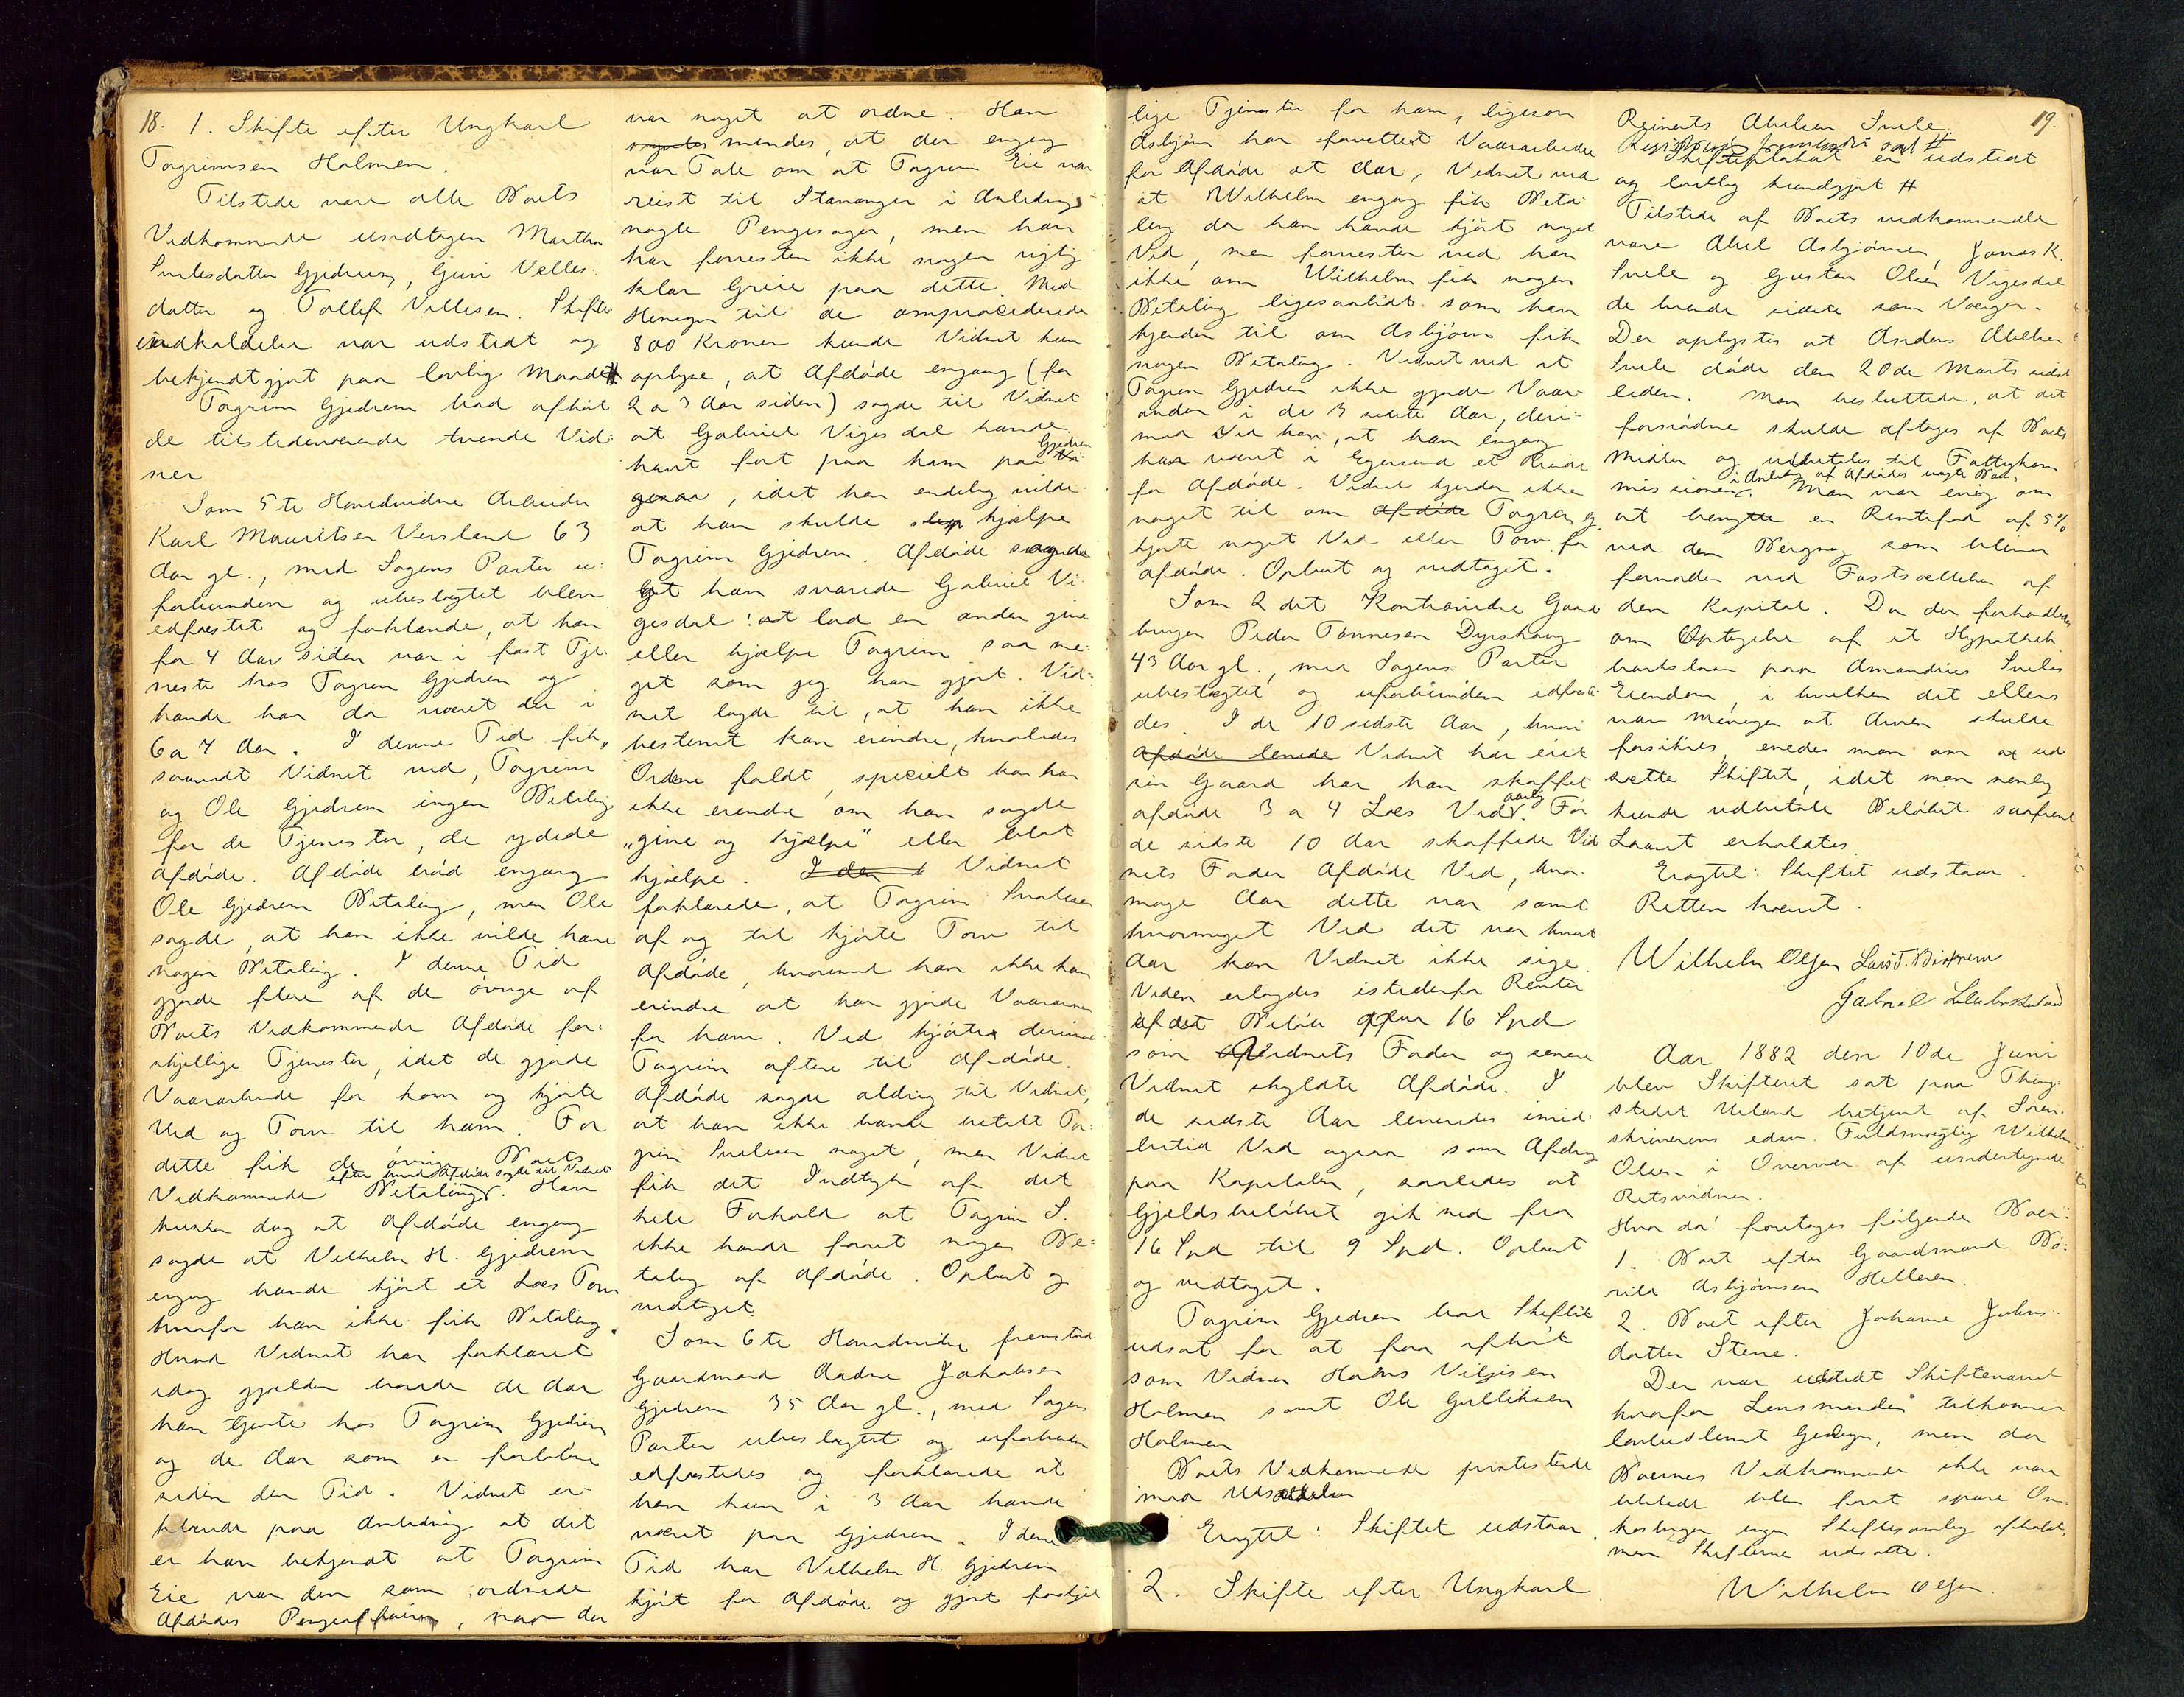 18. 1. Skifte efter Ungkarl
Torgrimsen Holmen.
Tilstede vare alle Boets
Vedkommende undtagen Martha
Svalesdatter Gjedrem, Guri Velles-
datter og Tollef Villesen. Skifte
indkaldelse var udstedt og
bekjendtgjort paa lovlig Maade #
Torgrim Gjedrem bad afhört
de tilstedeværende tvende Vid-
ner
Som 5te Hovedvidne Arbeider
Karl Mauritsen Versland 63
Aar gl., med Sagens Parter u-
forbunden og ubeslægtet blev
edfæstet og forklarede, at han
for 4 Aar siden var i fast Tje-
neste hos Torgrim Gjedrem og
havde han da været der i
6 a 7 Aar. I denne Tid fik,
saavidt Vidnet ved, Torgrim
og Ole Gjedrem ingen Betaling
for de Tjenester, de ydede
Afdöde. Afdöde bröd engang
Ole Gjedrem Betaling, men Ole
sagde, at han ikke vilde have
nogen Betaling. I denne Tid
gjorde flere af de övrige af
Boets Vedkommende Afdöde for-
skjellige Tjenester, idet de gjorde
Vaararbeide for ham og kjörte
Ved og Torv til ham. For
dette fik de övrige Boets
efter hvad Afdöde sagde til Vidnet
Vedkommende Betaling. Han
husker dog at Afdöde engang
sagde at Vilhelm H. Gjedrem
engang havde kjört et Læs Torv
hvorfor han ikke fik Betaling.
Hvad Vidnet har forklaret
idag gjælder baade de Aar
han tjente hos Torgrim Gjedrem
og de Aar som er forløbne
siden den Tid. Vidnet er-
klærede paa Anledning at det
er ham bekjendt at Torgrim
Eie var den som ordnede
Afdödes Pengeaffairer, naar der
var noget at ordne. Han
mendes, at der engang
var Tale om at Torgrim Eie var
reist til Stavanger i Anledning
nogle Pengesager, men han
har forresten ikke nogen rigtig
klar Greie paa dette. Med
Hensyn til de omprocederede
800 Kroner kunde Vidnet kun
oplyse, at Afdöde engang (for
2 a 3 Aar siden) sagde til Vidnet
at Gabriel Vigesdal havde
Gjedrem
havt fort paa ham paa Vi-
gesaa, idet han endelig vilde
at han skulde hjælpe
Torgrim Gjedrem. Afdöde sagde
at han svarede Gabriel Vi-
gesdal: at lad en anden give
eller hjælpe Torgrim saa me-
get som jeg har gjort. Vid-
net lagde til, at han ikke
bestemt kan erindre, hvorledes
Ordene faldt, specielt kan han
ikke erindre om han sagde
"give og hjælpe" eller blot
hjælpe. I den Vidnet
forklarede, at Torgrim Svalesen
af og til kjörte Torv til
Afdöde, hvorimod han ikke kan
erindre at han gjorde Vaaronn
for ham. Ved kjörte derimod
Torgrim oftere til Afdöde.
Afdöde sagde aldrig til Vidnet,
at han ikke havde betalt Tor-
grim Svalesen noget, men Vidnet
fik det Indtryk af det
hele Forhold at Torgrim S.
ikke havde faaet nogen Be-
taling af Afdöde. Oplæst og
vedtaget.
Som 6te Hovedvidne fremstod
Gaardmand Aadne Jakobsen
Gjedrem 35 Aar gl., med Sagens
Parter ubeslægtet og uforbunden
edfæstedes og forklarede at
han kun i 3 Aar havde
været paa Gjedrem. I denne
Tid har Vilhelm H. Gjedrem
kjört for Afdöde og gjort forskjel-
lige Tjenester for ham, ligesom
Asbjörn har forrettet Vaararbeide
for Afdöde et Aar, Vidnet ved
at Wilhelm engang fik Beta-
ling da han havde kjört noget
Ved, men forresten ved han
ikke om Wilhelm fik nogen
Betaling ligesaalidt som han
kjender til om Asbjörn fik
nogen Betaling. Vidnet ved at
Torgrim Gjedrem ikke gjorde Vaar-
onden i de 3 sidste Aar, deri-
mod ved han, at han engang
har været i Egersund et Ærinde
for Afdöde. Vidnet kjender ikke
noget til om Afdöde Torgrim G.
kjörte noget Ved eller Torv for
Afdöde. Oplæst og vedtaget.
Som 2det Kontravidne Gaard-
bruger Peder Tönnesen Dyrskaug
43 Aar gl., med Sagens Parter
ubeslægtet og uforbunden edfæste-
des. I de 10 sidste Aar, hvori
Afdöde levede Vidnet har eiet
sin Gaard har han skaffet
aarlig
Afdöde 3 a 4 Læs Ved. För
de sidste 10 Aar skaffede Vid-
nets Fader Afdöde Ved, hvor-
mange Aar dette var samt
hvormeget Ved det var hvert
Aar kan Vidnet ikke sige.
Veden erlagdes istedenfor Renter
af det Belöb 16 Spd
som Vidnets Fader og senere
Vidnet skyldte Afdöde. I
de sidste Aar leveredes imid-
lertid Ved ogsaa som Afdrag
paa Kapitalen, saaledes at
Gjeldsbelöbet gik ned fra
16 Spd til 9 Spd. Oplæst
og vedtaget.
Torgrim Gjedrem bad Skiftet
udsat for at faa afhört
som Vidner Hans Viljesen
Holmen samt Ole Gulliksen
Holmen
Boets Vedkommende protesterede
mod Udsættelsen
Eragtet: Skiftet udstaar.
2. Skifte efter Ungkarl
19.
Reinerts Abelsen Svele
Skifteplakat er udstedt
og lovlig kundgjort #
Tilstede af Boets vedkommende
vare Abel Asbjörnsen, Jonas K.
Svele og Gustav Olsen Vigesdal
de tvende sidste som Værger.
Der oplystes at Anders Abelsen
Svele döde den 20de Marts sidst-
leden. Man besluttede, at det
fornödne skulde aftages af Boets
Midler og udbetales til Fattigkom-
missionen. Man var enig om
at benytte en Rentefod af 5%
ved den Beregning som bliver
fornöden ved Fastsættelsen af
den Kapital. Da der forhandledes
om Optagelse af et Hypothek-
bankslaan paa Amandius Sveles
Eiendom, i hvilken det ellers
var Meningen at Arven skulde
forsikres, enedes man om at ud-
sætte Skiftet, idet man nemlig
kunde udbetale Belöbet saafremt
Laanet erholdtes.
Eragtet: Skiftet udstaar.
Retten hævet.
Wilhelm Olsen Lars T. Birkrem
Gabriel
Aar 1882 den 10de Juni
blev Skifteret sat paa Thing-
stedet Ueland betjent af Soren-
skriverens edsv. Fuldmægtig Wilhelm
Olsen i Overvær af undertegnede
Retsvidner.
Hvor da! foretoges fölgende Boer:
1. Boet efter Gaardmand Bö-
rild Asbjörnsen Helleren.
2. Boet efter Johanne Johns-
datter Stene.
Der var udstedt Skiftevarsel
hvorfor Lensmanden tilkommer
lovbestemt Gebyr, men da
Boernes Vedkommende ikke var
tilstede blev for at spare Om-
kostninger ingen Skiftesamling afholdt,
men Skifterne udsatte.
Wilhelm Olsen.